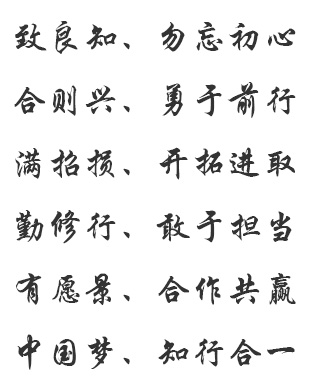 致良知、勿忘初心
合则兴、勇于前行
满招损、开拓进取
勤修行、敢于担当
有愿景、合作共赢
中国梦、知行合一